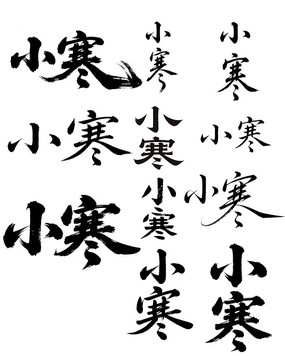 小寒
小寒
小寒
小寒
小寒
小寒
小寒
小寒
小寒
小寒
小寒